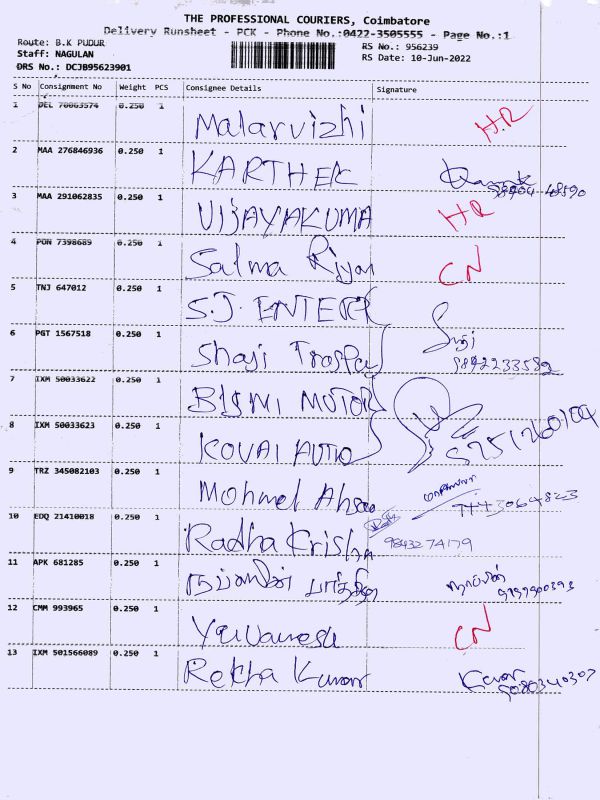 THE PROFESSIONAL COURIERS, Coimbatore
Delivery Runsheet - PCK - Phone No.:0422-3505555 - Page No.:1
Route: B.K PUDUR
RS No.: 956239
Staff: NAGULAN
RS Date: 10-Jun-2022
DRS No.: DCJB95623901
S No Consignment No Weight PCS Consignee Details Signature
1 DEL 70063574 0.250 1 Malarvizhi HR
2 MAA 276846936 0.250 1 KARTHEK
3 MAA 291062835 0.250 1 VIJAYAKUMA HR
4 PON 7398689 0.250 1 Salma Riyan CN
5 TNJ 647012 0.250 1 S.J. ENTERP
6 PGT 1567518 0.250 1 Shaji 9842233582
7 IXM 50033622 0.250 1 MOTOR
8 IXM 50033623 0.250 1 KOVAI AUTO
9 TRZ 345082103 0.250 1 Mohmed
10 EDQ 21410018 0.250 1 Radha Krishn 9843274179
11 APK 681285 0.250 1
12 CMM 993965 0.250 1 Yuvanesh CN
13 IXM 501566089 0.250 1 Rekha Kumar 9080340307